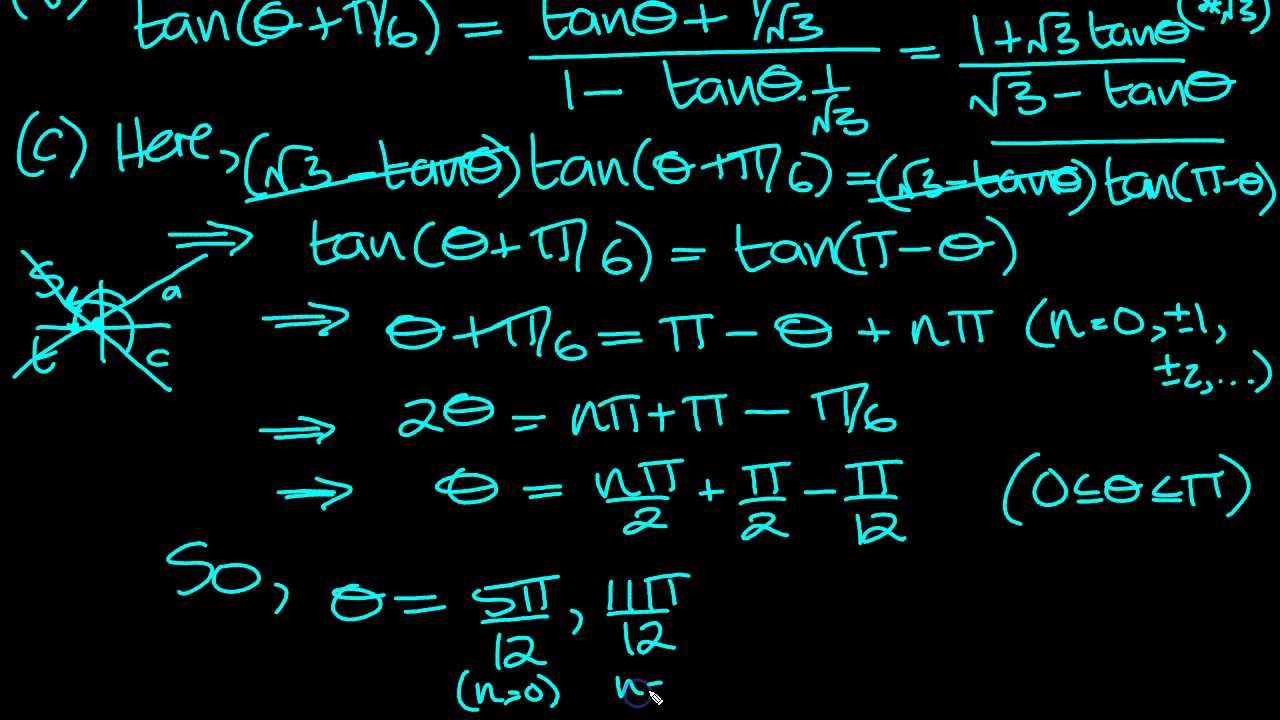 tan(θ+π/6) = (tanθ + 1/√3)/(1 − tanθ.1/√3) = (1+√3 tanθ)/(√3 − tanθ) (*√3)
(c) Here, (√3 − tanθ) tan(θ+π/6) = (√3 − tanθ) tan(π−θ)
⟹ tan(θ+π/6) = tan(π−θ)
S a
t c
⟹ θ+π/6 = π − θ + nπ (n=0,±1,
±2,...)
⟹ 2θ = nπ+π − π/6
⟹ θ = nπ/2 + π/2 − π/12 (0≤θ≤π)
So, θ = 5π/12, 11π/12
(n=0) n=